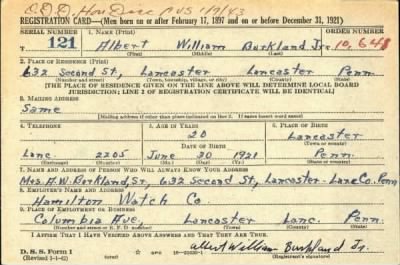 REGISTRATION CARD—(Men born on or after February 17, 1897 and on or before December 31, 1921)
SERIAL NUMBER 1. NAME (Print) ORDER NUMBER
121 Albert William Burkland Jr. 10,648
(First) (Middle) (Last)
2. PLACE OF RESIDENCE (Print)
632 Second St., Lancaster Lancaster Penn.
(Number and street) (Town, township, village, or city) (County) (State)
[THE PLACE OF RESIDENCE GIVEN ON THE LINE ABOVE WILL DETERMINE LOCAL BOARD
JURISDICTION; LINE 2 OF REGISTRATION CERTIFICATE WILL BE IDENTICAL]
3. MAILING ADDRESS
Same
[Mailing address if other than place indicated on line 2. If same insert word same]
4. TELEPHONE 5. AGE IN YEARS 6. PLACE OF BIRTH
20 Lancaster
DATE OF BIRTH (Town or county)
Lanc. 2205 June 30 1921 Penn.
(Exchange) (Number) (Mo.) (Day) (Yr.) (State or country)
7. NAME AND ADDRESS OF PERSON WHO WILL ALWAYS KNOW YOUR ADDRESS
Mrs. A.W. Burkland, Sr., 632 Second St., Lancaster-Lanc Co. Penn
8. EMPLOYER'S NAME AND ADDRESS
Hamilton Watch Co.
9. PLACE OF EMPLOYMENT OR BUSINESS
Columbia Ave., Lancaster Lanc. Penn.
(Number and street or R. F. D. number) (Town) (County) (State)
I AFFIRM THAT I HAVE VERIFIED ABOVE ANSWERS AND THAT THEY ARE TRUE.
D. S. S. Form 1
(Revised 1-1-42) (over) Albert William Burkland Jr.
(Registrant's signature)